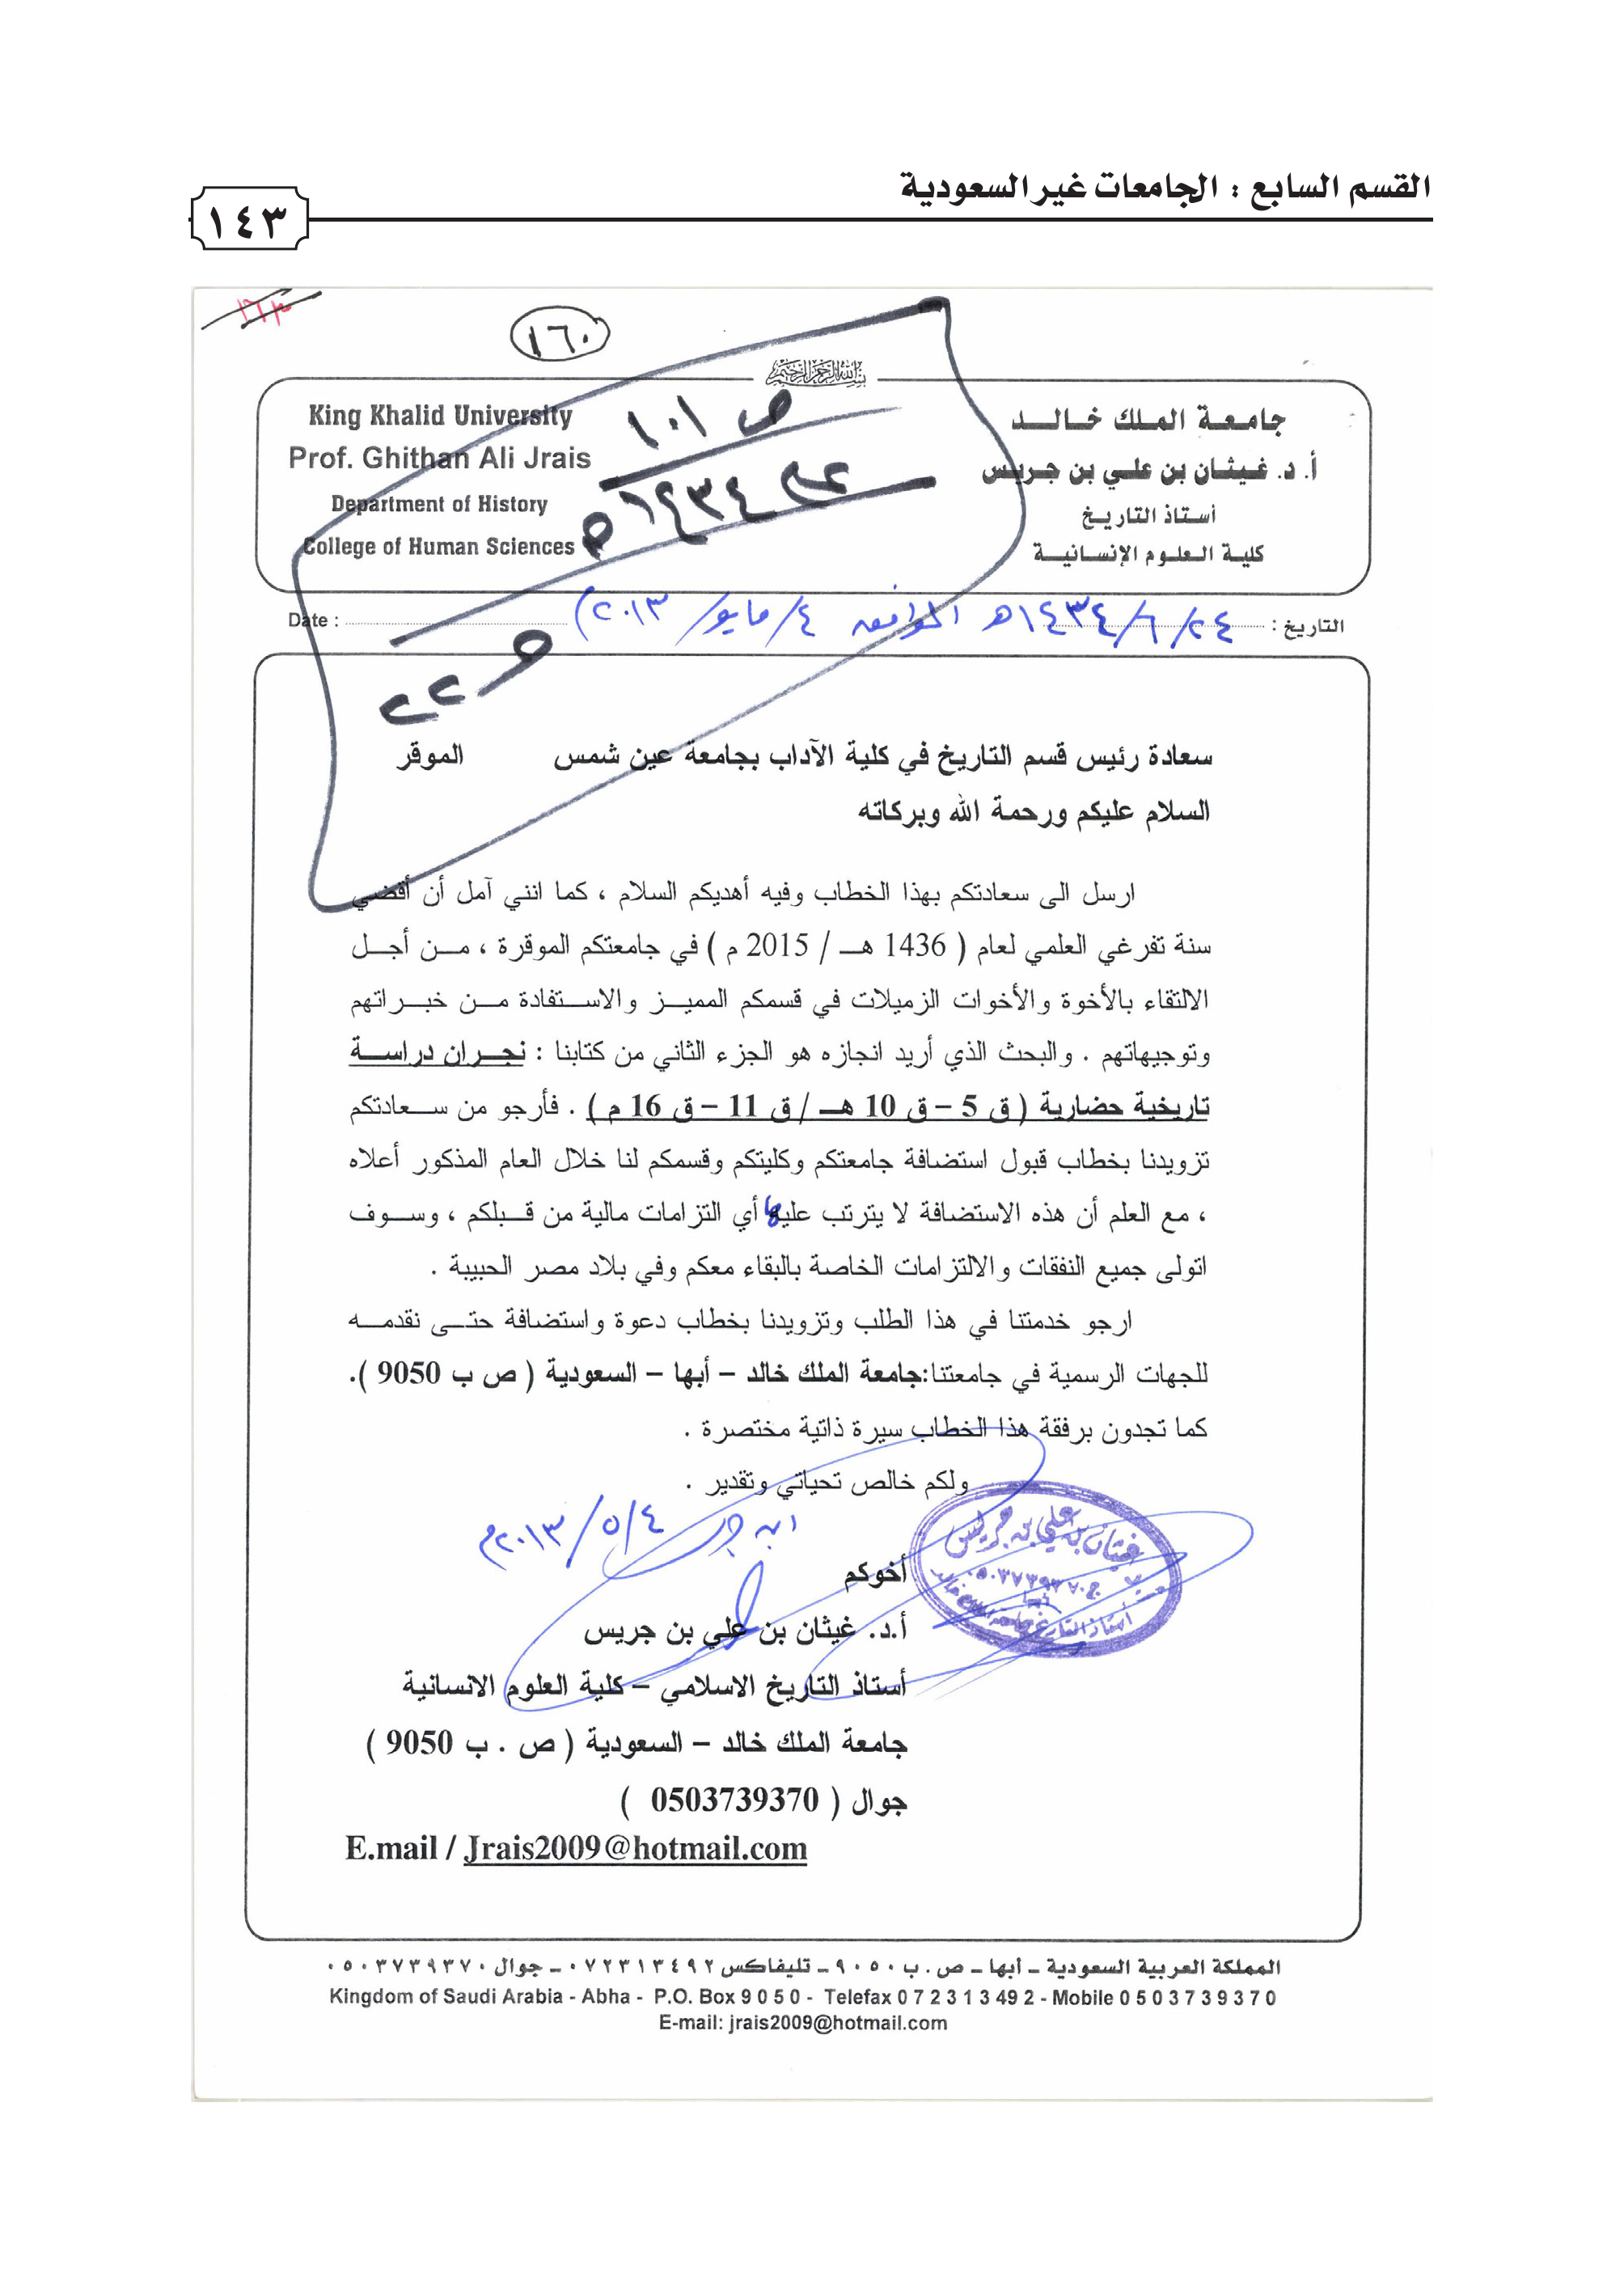 القسم السابع : الجامعات غير السعودية
١٤٣
١٦٣
١٦٠
بسم الله الرحمن الرحيم
King Khalid University
Prof. Ghithan Ali Jrais
Department of History
College of Human Sciences
جامعة الملك خالد
أ. د. غيثان بن علي بن جريس
أستاذ التاريخ
كلية العلوم الإنسانية
ص ١٠١
١٤٣٤هـ
٢٢
التاريخ : ٢٤/٦/١٤٣٤هـ الموافق ٤/مايو/٢٠١٣) Date :
سعادة رئيس قسم التاريخ في كلية الآداب بجامعة عين شمس الموقر
السلام عليكم ورحمة الله وبركاته
ارسل الى سعادتكم بهذا الخطاب وفيه أهديكم السلام ، كما انني آمل أن أقضي
سنة تفرغي العلمي لعام ( 1436 هـ / 2015 م ) في جامعتكم الموقرة ، من أجل
الالتقاء بالأخوة والأخوات الزميلات في قسمكم المميز والاستفادة من خبراتهم
وتوجيهاتهم . والبحث الذي أريد انجازه هو الجزء الثاني من كتابنا : نجران دراسة
تاريخية حضارية ( ق 5 – ق 10 هـ / ق 11 – ق 16 م ) . فأرجو من سعادتكم
تزويدنا بخطاب قبول استضافة جامعتكم وكليتكم وقسمكم لنا خلال العام المذكور أعلاه
، مع العلم أن هذه الاستضافة لا يترتب عليها أي التزامات مالية من قبلكم ، وسوف
اتولى جميع النفقات والالتزامات الخاصة بالبقاء معكم وفي بلاد مصر الحبيبة .
ارجو خدمتنا في هذا الطلب وتزويدنا بخطاب دعوة واستضافة حتى نقدمه
للجهات الرسمية في جامعتنا:جامعة الملك خالد – أبها – السعودية ( ص ب 9050 ).
كما تجدون برفقة هذا الخطاب سيرة ذاتية مختصرة .
ولكم خالص تحياتي وتقدير .
ابن جريس ٤/٥/٢٠١٣م
غيثان بن علي بن جريس
ج ٠٥٠٣٧٣٩٣٧٠
أستاذ التاريخ بجامعة الملك خالد
أخوكم
أ.د. غيثان بن علي بن جريس
أستاذ التاريخ الاسلامي – كلية العلوم الانسانية
جامعة الملك خالد – السعودية ( ص . ب 9050 )
جوال ( 0503739370 )
E.mail / Jrais2009@hotmail.com
المملكة العربية السعودية ـ أبها ـ ص . ب ٩٠٥٠ ـ تليفاكس ٠٧٢٣١٣٤٩٢ ـ جوال ٠٥٠٣٧٣٩٣٧٠
Kingdom of Saudi Arabia - Abha - P.O. Box 9 0 5 0 - Telefax 0 7 2 3 1 3 4 9 2 - Mobile 0 5 0 3 7 3 9 3 7 0
E-mail: jrais2009@hotmail.com